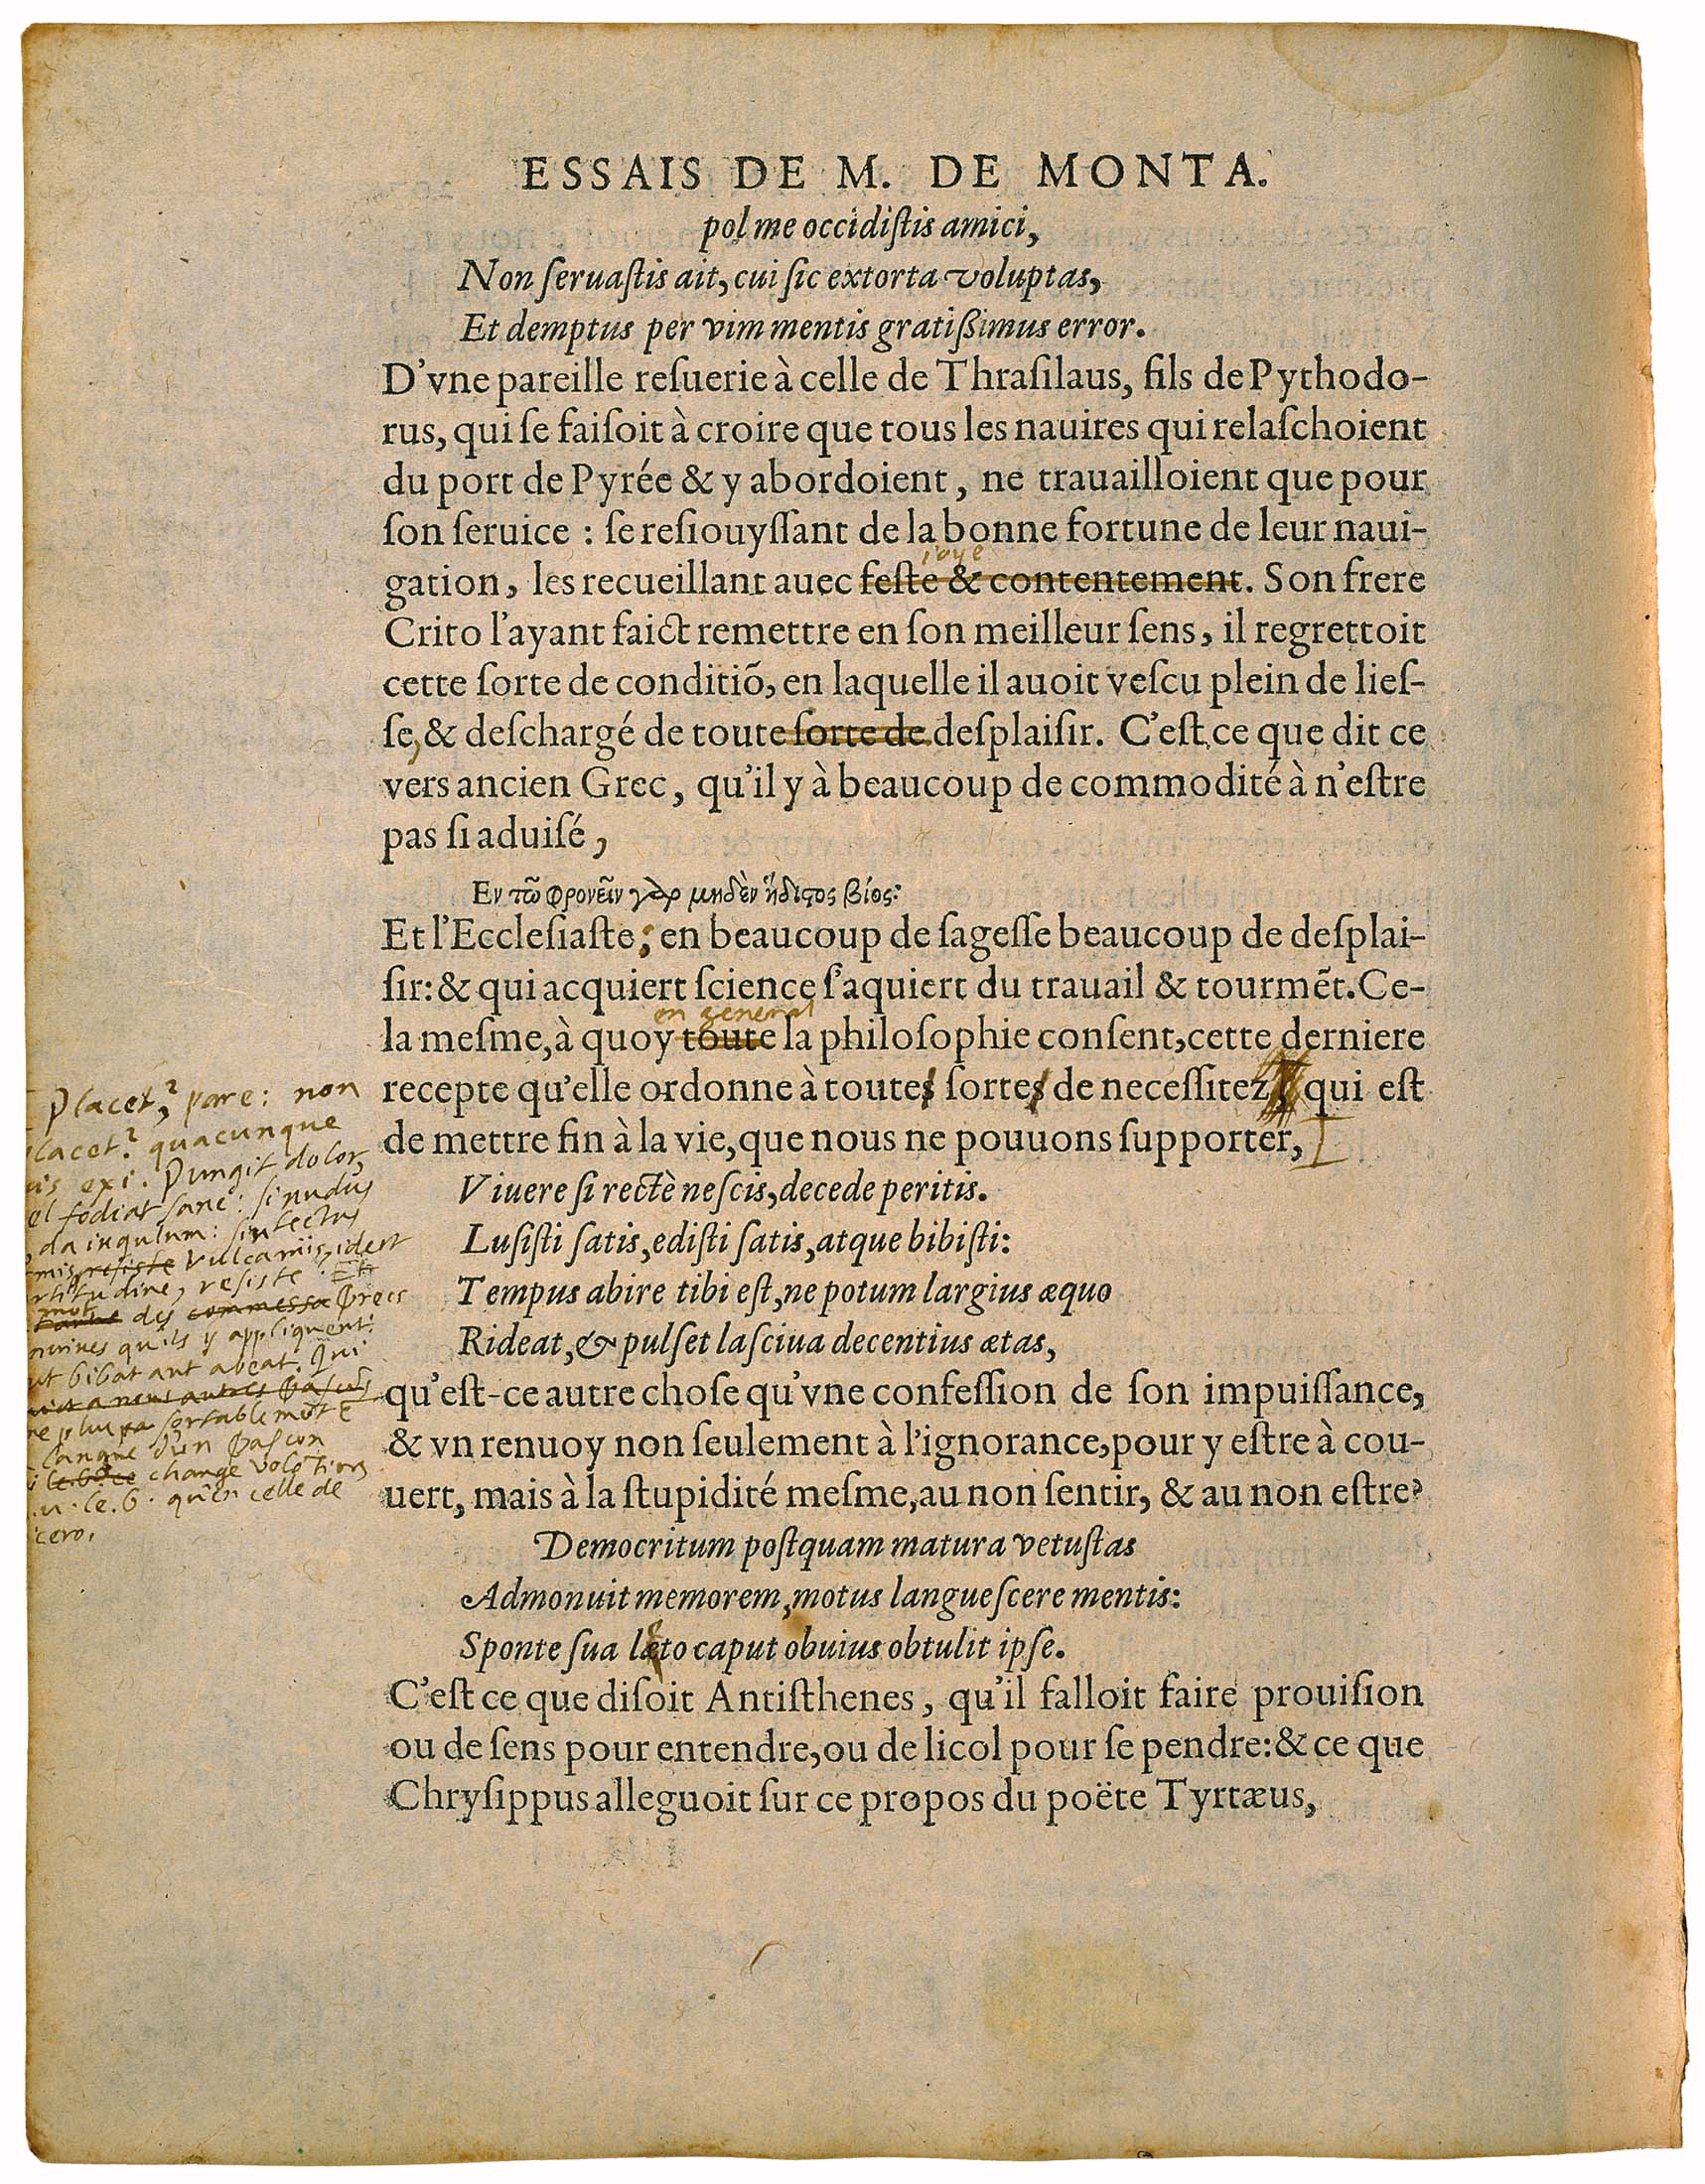 ESSAIS DE M. DE MONTA.
pol me occidiſtis amici,
Non ſeruaſtis ait, cui ſic extorta voluptas,
Et demptus per vim mentis gratißimus error.
D'vne pareille reſuerie à celle de Thraſilaus, fils de Pythodo-
rus, qui ſe faiſoit à croire que tous les nauires qui relaſchoient
du port de Pyrée & y abordoient, ne trauailloient que pour
ſon ſeruice : ſe reſiouyſſant de la bonne fortune de leur naui-
ioye
gation, les recueillant auec feſte & contentement. Son frere
Crito l'ayant faict remettre en ſon meilleur ſens, il regrettoit
cette ſorte de conditiõ, en laquelle il auoit veſcu plein de lieſ-
ſe, & deſchargé de toute ſorte de deſplaiſir. C'eſt ce que dit ce
vers ancien Grec, qu'il y à beaucoup de commodité à n'eſtre
pas ſi aduiſé,
Εν τῶ φρονεῖν γὰρ μηδὲν ἥδιϛος βίος:
Et l'Eccleſiaſte; en beaucoup de ſageſſe beaucoup de deſplai-
ſir: & qui acquiert ſcience ſ'aquiert du trauail & tourmẽt. Ce-
en general
la meſme, à quoy toute la philoſophie conſent, cette derniere
recepte qu'elle ordonne à toutes ſortes de neceſſitez qui eſt
de mettre fin à la vie, que nous ne pouuons ſupporter,
Placet? pare: non
lacet? quacunque
is exi. Pungit dolor,
el fodiat sane: si nudus
da iugulum: sin tectus
mis resiste Vulcaniis, id est
rtitudine, resiste. Et
mot des Grecs
nuiues qu'ils y appliquent:
ut bibat aut abeat. Qui
ne plus sortablemẽt
langue d'un Gascon
change volõtiers
u. le. b. qu'en celle de
cero.
Viuere ſi rectè neſcis, decede peritis.
Luſiſti ſatis, ediſti ſatis, atque bibiſti:
Tempus abire tibi eſt, ne potum largius æquo
Rideat, & pulſet laſciua decentius ætas,
qu'eſt-ce autre choſe qu'vne confeſſion de ſon impuiſſance,
& vn renuoy non ſeulement à l'ignorance, pour y eſtre à cou-
uert, mais à la ſtupidité meſme, au non ſentir, & au non eſtre?
Democritum poſtquam matura vetuſtas
Admonuit memorem, motus langueſcere mentis:
Sponte ſua læto caput obuius obtulit ipſe.
C'eſt ce que diſoit Antiſthenes, qu'il falloit faire prouiſion
ou de ſens pour entendre, ou de licol pour ſe pendre: & ce que
Chryſippus alleguoit ſur ce propos du poëte Tyrtæus,